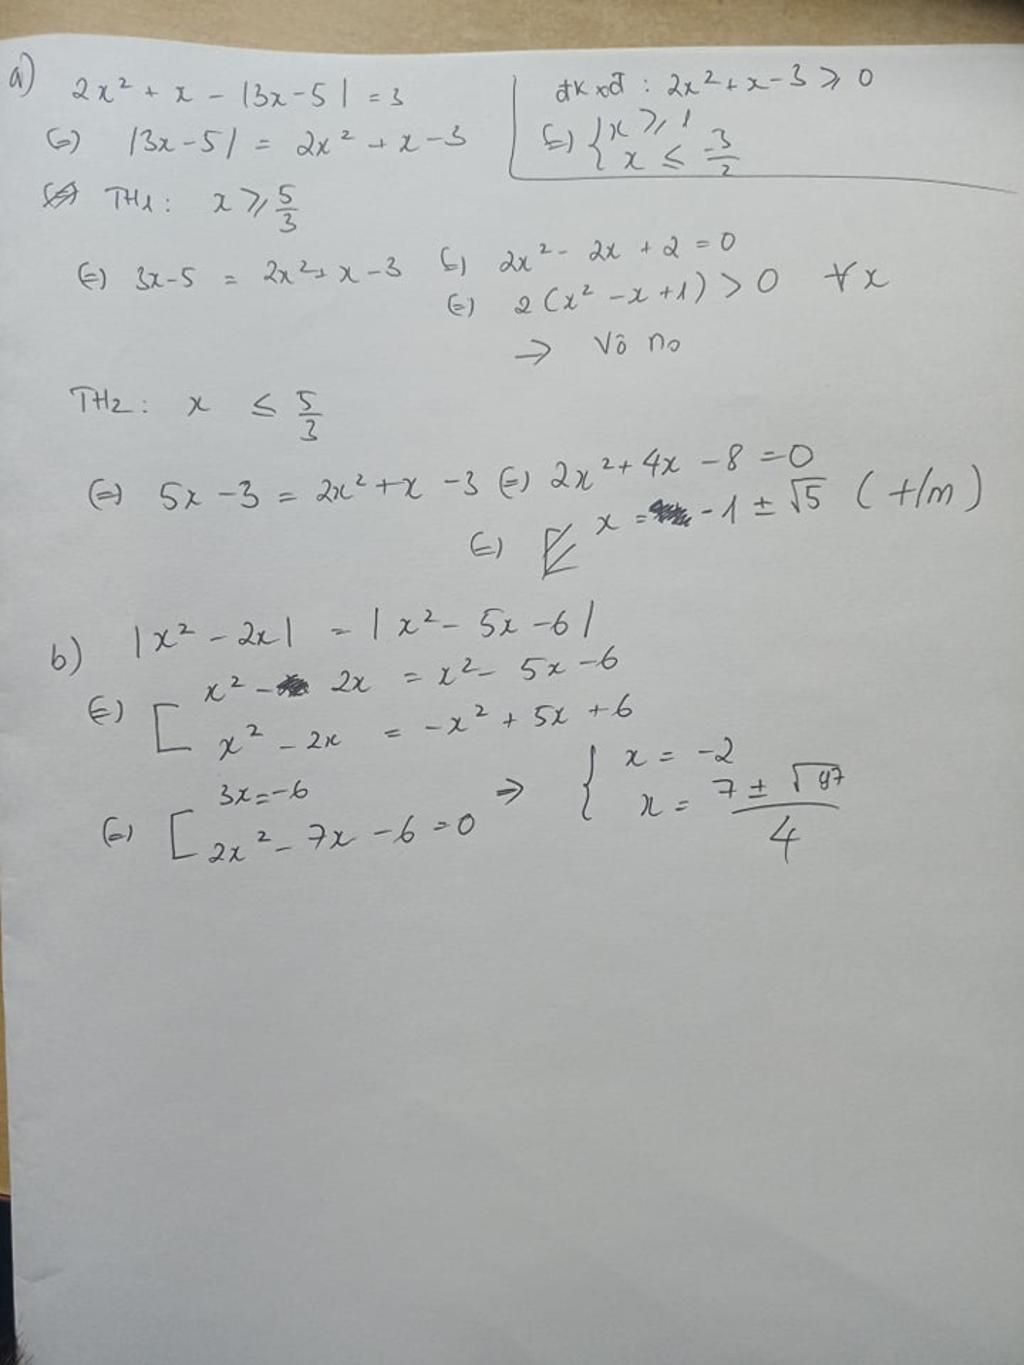 a) 2x² + x - |3x-5| = 3
(=) |3x-5| = 2x² + x - 3
đkxđ: 2x² + x - 3 ⩾ 0
(=) { x ⩾ 1
x ≤ -3/2
TH1: x ⩾ 5/3
(=) 3x-5 = 2x² + x - 3 (=) 2x² - 2x + 2 = 0
(=) 2(x² - x + 1) > 0 ∀x
→ Vô no
TH2: x ≤ 5/3
(=) 5x - 3 = 2x² + x - 3 (=) 2x² + 4x - 8 = 0
(=) [ x = -1 ± √5 (t/m)
b) |x² - 2x| = |x² - 5x - 6|
(=) [ x² - 2x = x² - 5x - 6
x² - 2x = -x² + 5x + 6
(=) [ 3x = -6
2x² - 7x - 6 = 0
=> { x = -2
x = (7 ± √97)/4